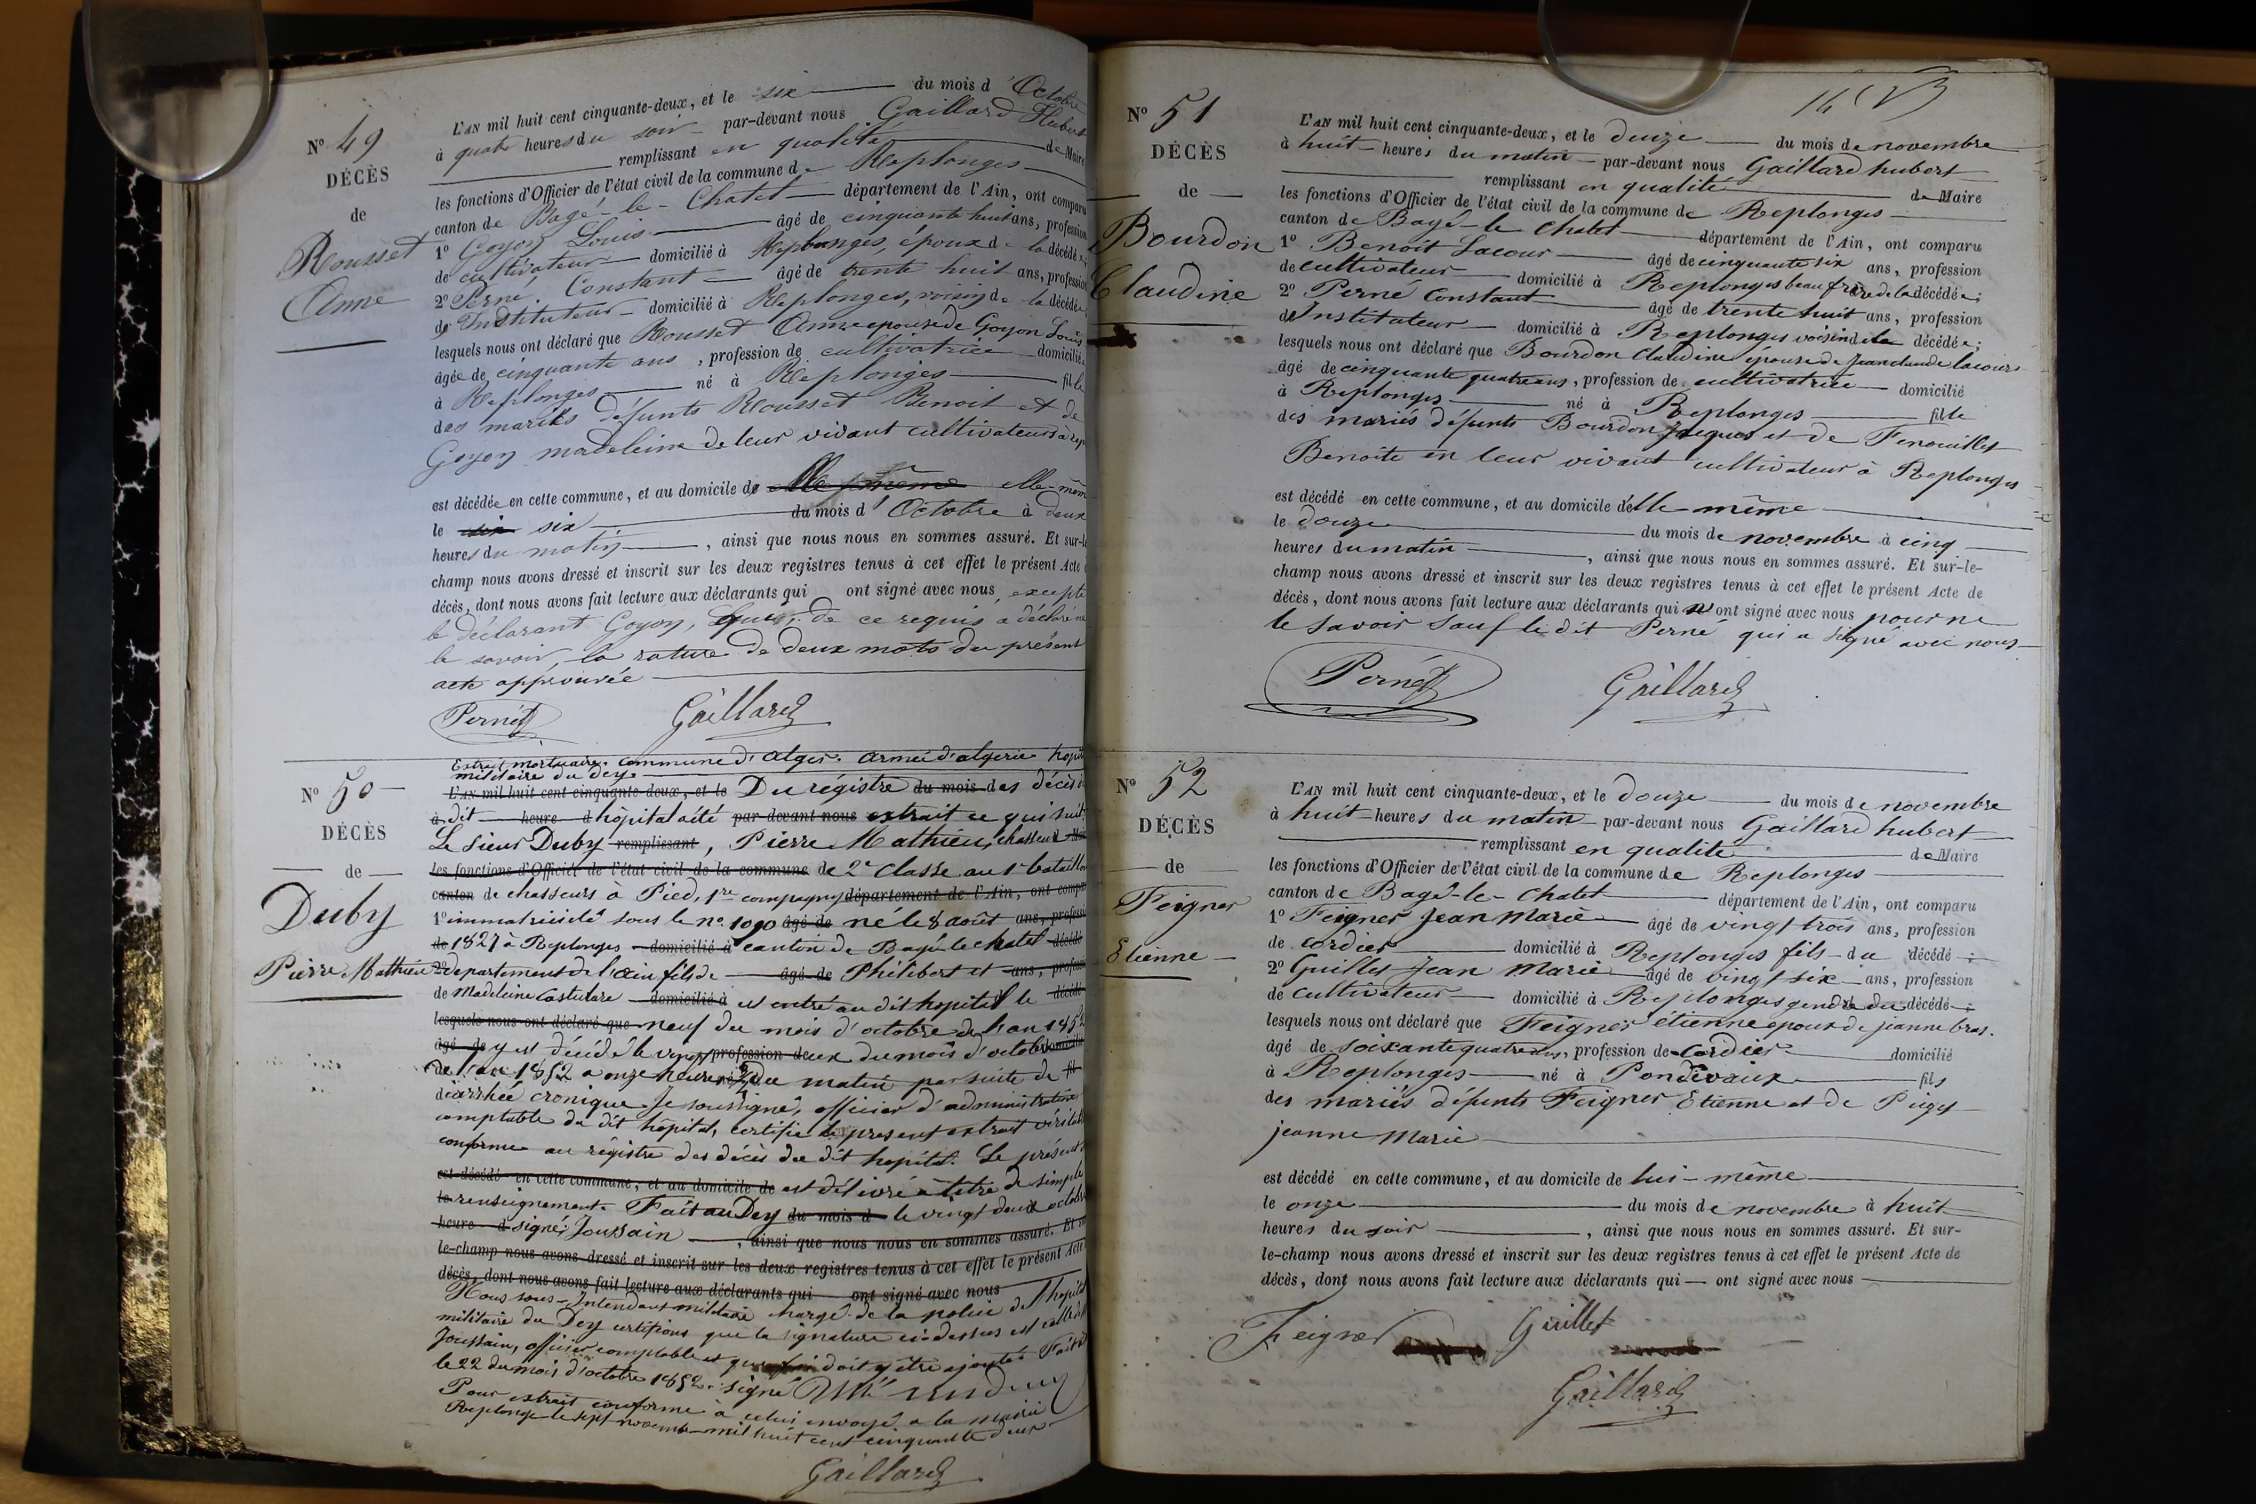 N° 49
DÉCÈS
de
Rousset
Anne
L'AN mil huit cent cinquante-deux, et le six du mois d'Octobre
à quatre heures du soir par-devant nous Gaillard Hubert
remplissant en qualité de Maire
les fonctions d'Officier de l'état civil de la commune de Replonges
canton de Bagé-le-Chatel département de l'Ain, ont comparu
1° Goyon Louis âgé de cinquante huit ans, profession
de cultivateur domicilié à Replonges, époux de la décédée;
2° Perné Constant âgé de trente huit ans, profession
de Instituteur domicilié à Replonges, voisin de la décédée
lesquels nous ont déclaré que Rousset Anne epouse de Goyon Louis
âgée de cinquante ans, profession de cultivatrice domicilié
à Replonges né à Replonges fille
des mariés défunts Rousset Benoit et de
Goyon madeleine de leur vivant cultivateurs à
est décédée en cette commune, et au domicile de elle-même
le six six du mois d'Octobre à deux
heures du matin, ainsi que nous nous en sommes assuré. Et sur-le
champ nous avons dressé et inscrit sur les deux registres tenus à cet effet le présent Acte
décès, dont nous avons fait lecture aux déclarants qui ont signé avec nous, excepté
le déclarant Goyon, qui, de ce requis a déclaré ne
le savoir, la rature de deux mots du présent
acte approuvée
Perné Gaillard
N° 50
DÉCÈS
de
Duby
Pierre Mathieu
Extrait mortuaire. Commune d'Alger. armée d'algerie hopital
militaire du Dey.
L'AN mil huit cent cinquante-deux, et le Du régistre du mois des décès
à dit heure d hôpital a été par-devant nous extrait ce qui suit
Le sieur Duby remplissant, Pierre Mathieu, chasseur
les fonctions d'Officier de l'état civil de la commune de 2e classe au bataillon
canton de chasseurs à Pied, 1re compagny département de l'Ain, ont comparu
1° immatriculé sous le n° 1090 âgé de né le 8 août ans, profession
de 1827 à Replonges domicilié à canton de Bagé le chatel décédé
2° departement de l'ain fils de âgé de Philibert et ans, profession
de Madeleine Castulare domicilié à est entré au dit hopital le décédé
lesquels nous ont déclaré que neuf du mois d'octobre de l'an 1852
âgé de y est décédé le vingt profession deux du mois d'octobre domicilié
de l'an 1852 a onze heures du matin par suite de fil
diarrhée cronique. Je soussigné, officier d'administration
comptable du dit hopital, certifie le present extrait véritable
conforme au régistre des décès du dit hopital. Le présent
est décédé en cette commune, et au domicile de est délivré à titre de simple
le renseignement. Fait au Dey du mois d le vingt deux octobre
heure d signé: Joussain, ainsi que nous nous en sommes assuré. Et
le-champ nous avons dressé et inscrit sur les deux registres tenus à cet effet le présent Acte
décès, dont nous avons fait lecture aux déclarants qui ont signé avec nous
Nous sous-Intendant militaire chargé de la police de l'hopital
militaire du Dey certifions que la signature ci-dessus est celle de
Joussain, officier comptable et que foi doit y être ajoutée. Fait
le 22 du mois d'octobre 1852. signé
Pour extrait conforme à celui envoyé a la mairie
Replonge le sept novembre mil huit cent cinquante deux
Gaillard
N° 51
DÉCÈS
de
Bourdon
Claudine
L'AN mil huit cent cinquante-deux, et le douze du mois de novembre
à huit heures du matin par-devant nous Gaillard hubert
remplissant en qualité de Maire
les fonctions d'Officier de l'état civil de la commune de Replonges
canton de Bagé-le Chatel département de l'Ain, ont comparu
1° Benoit Lacour âgé de cinquante six ans, profession
de cultivateur domicilié à Replonges beau frère de la décédée;
2° Perné Constant âgé de trente huit ans, profession
de Instituteur domicilié à Replonges voisin de la décédée;
lesquels nous ont déclaré que Bourdon Claudine épouse de Jean claude lacour
âgé de cinquante quatre ans, profession de cultivatrice domicilié
à Replonges né à Replonges fille
des mariés défunts Bourdon Jacques et de Fenouillet
Benoite en leur vivant cultivateur à Replonges
est décédé en cette commune, et au domicile d'elle même
le douze du mois de novembre à cinq
heures du matin, ainsi que nous nous en sommes assuré. Et sur-le-
champ nous avons dressé et inscrit sur les deux registres tenus à cet effet le présent Acte de
décès, dont nous avons fait lecture aux déclarants qui n'ont signé avec nous pour ne
le savoir sauf le dit Perné qui a signé avec nous
Perné Gaillard
N° 52
DÉCÈS
de
Feigner
Etienne
L'AN mil huit cent cinquante-deux, et le douze du mois de novembre
à huit heures du matin par-devant nous Gaillard hubert
remplissant en qualité de Maire
les fonctions d'Officier de l'état civil de la commune de Replonges
canton de Bagé-le-Chatel département de l'Ain, ont comparu
1° Feigner Jean Marie âgé de vingt trois ans, profession
de cordier domicilié à Replonges fils du décédé;
2° Guillet Jean Marie âgé de vingt six ans, profession
de cultivateur domicilié à Replonges gendre du décédé;
lesquels nous ont déclaré que Feigner étienne epoux de jeanne bras.
âgé de soixante quatre ans, profession de cordier domicilié
à Replonges né à Pondevaux fils
des mariés défunts Feigner Etienne et de Puget
jeanne Marie
est décédé en cette commune, et au domicile de lui-même
le onze du mois de novembre à huit
heures du soir, ainsi que nous nous en sommes assuré. Et sur-
le-champ nous avons dressé et inscrit sur les deux registres tenus à cet effet le présent Acte de
décès, dont nous avons fait lecture aux déclarants qui ont signé avec nous
Feigner Guillet
Gaillard